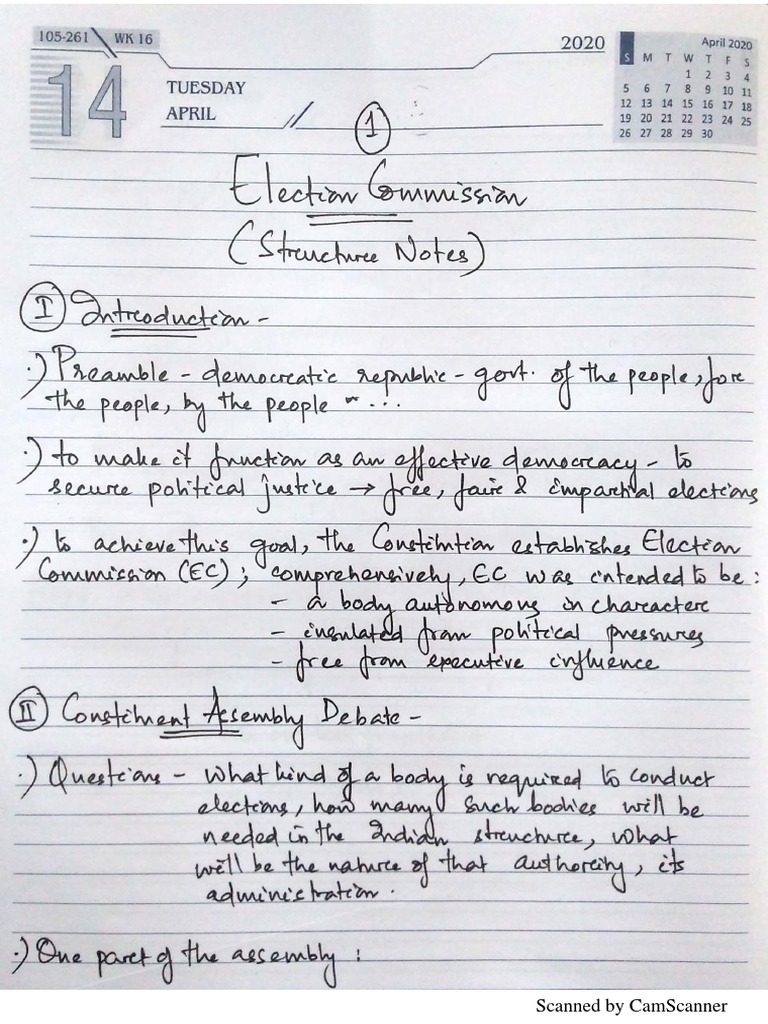 105-261 WK 16
2020
April 2020
S M T W T F S
1 2 3 4
5 6 7 8 9 10 11
12 13 14 15 16 17 18
19 20 21 22 23 24 25
26 27 28 29 30
14
TUESDAY
APRIL
1
Election Commission
(Structure Notes)
I Introduction -
·) Preamble - democratic republic - govt. of the people, for
the people, by the people - ...
·) to make it function as an effective democracy - to
secure political justice → free, fair & impartial elections
·) to achieve this goal, the Constitution establishes Election
Commission (EC) ; comprehensively, EC was intended to be :
- a body autonomous in character
- insulated from political pressures
- free from executive influence
II Constituent Assembly Debate -
·) Questions - what kind of a body is required to conduct
elections, how many such bodies will be
needed in the Indian structure, what
will be the nature of that authority, its
administration.
·) One part of the assembly :
Scanned by CamScanner